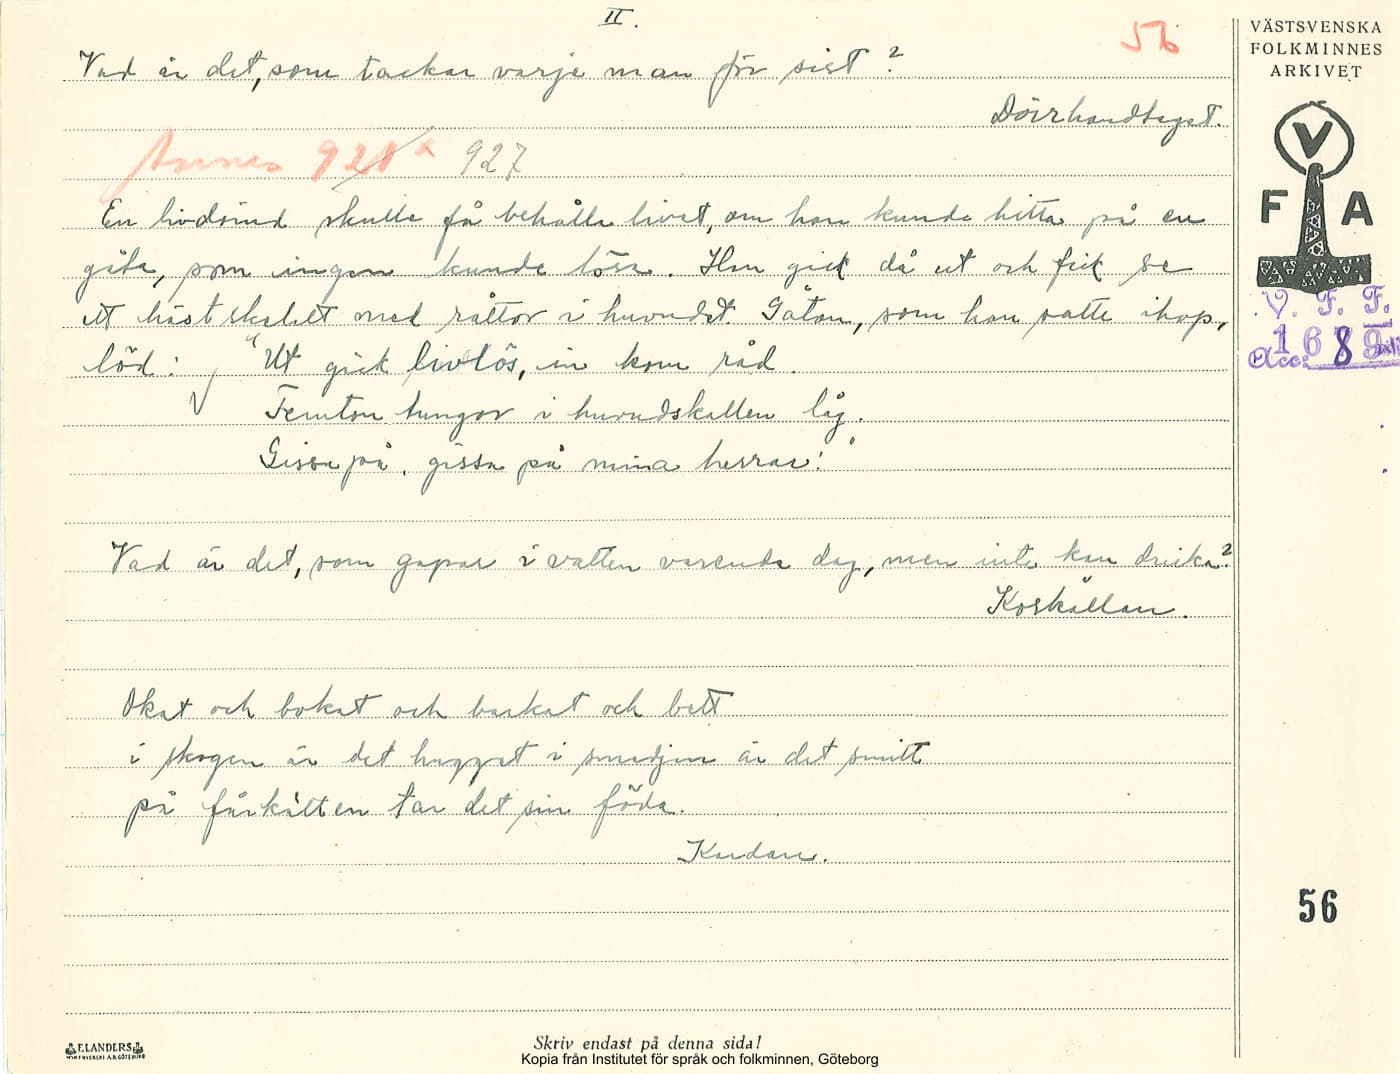 II.
56
VÄSTSVENSKA
FOLKMINNES
ARKIVET
Vad är det, som tackar varje man för sist?
Dörrhandtaget.
927
En livdömd skulle få behålla livet, om han kunde hitta på en
gåta, som ingen kunde lösa. Han gick då ut och fick se
ett hästskelett med råttor i huvudet. Gåtan, som han satte ihop,
löd: "Ut gick livlös, in kom råd.
Femton tungor i huvudskallen låg.
Gissa på, gissa på mina herrar!"
Vad är det, som gapar i vatten varenda dag, men inte kan dricka?
Koskällan.
Okat och bokat och barkat och bett
i skogen är det hugget i smedjan är det smitt
på fårkätten tar det sin föda.
Kardan.
V
F A
V. F. F.
Acc: 1689
56
ELANDERS
Skriv endast på denna sida!
Kopia från Institutet för språk och folkminnen, Göteborg